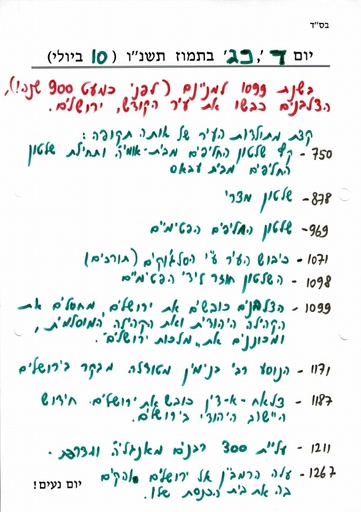 בס"ד
יום ד', כג' בתמוז תשנ"ו (10 ביולי)
בשנת 1099 למניינם (לפני כמעט 900 שנה!),
הצלבנים כבשו את עיר הקודש, ירושלים.
קצת מתולדות העיר של אותה תקופה:
750 - קץ שלטון החליפים מבית-אומיה ותחילת שלטון
החליפים מבית עבאס
878 - שלטון מצרי
969 - שלטון החליפים הפטימיים
1071 - כיבוש העיר ע"י הסלג'וקים (תורכים)
1098 - השלטון חוזר לידי הפטימיים
1099 - הצלבנים כובשים את ירושלים, מחסלים את
הקהילה היהודית ואת הקהילה המוסלמית,
ומכוננים את "מלכות ירושלים".
1171 - הנוסע רבי בנימין מטודלה מבקר בירושלים
1187 - צלאח-א-דין כובש את ירושלים. חידוש
היישוב היהודי בירושלים.
1211 - עליית 300 רבנים מאנגליה ומצרפת.
1267 - עלה הרמב"ן אל ירושלים והקים
בה את בית הכנסת שלו.
יום נעים!